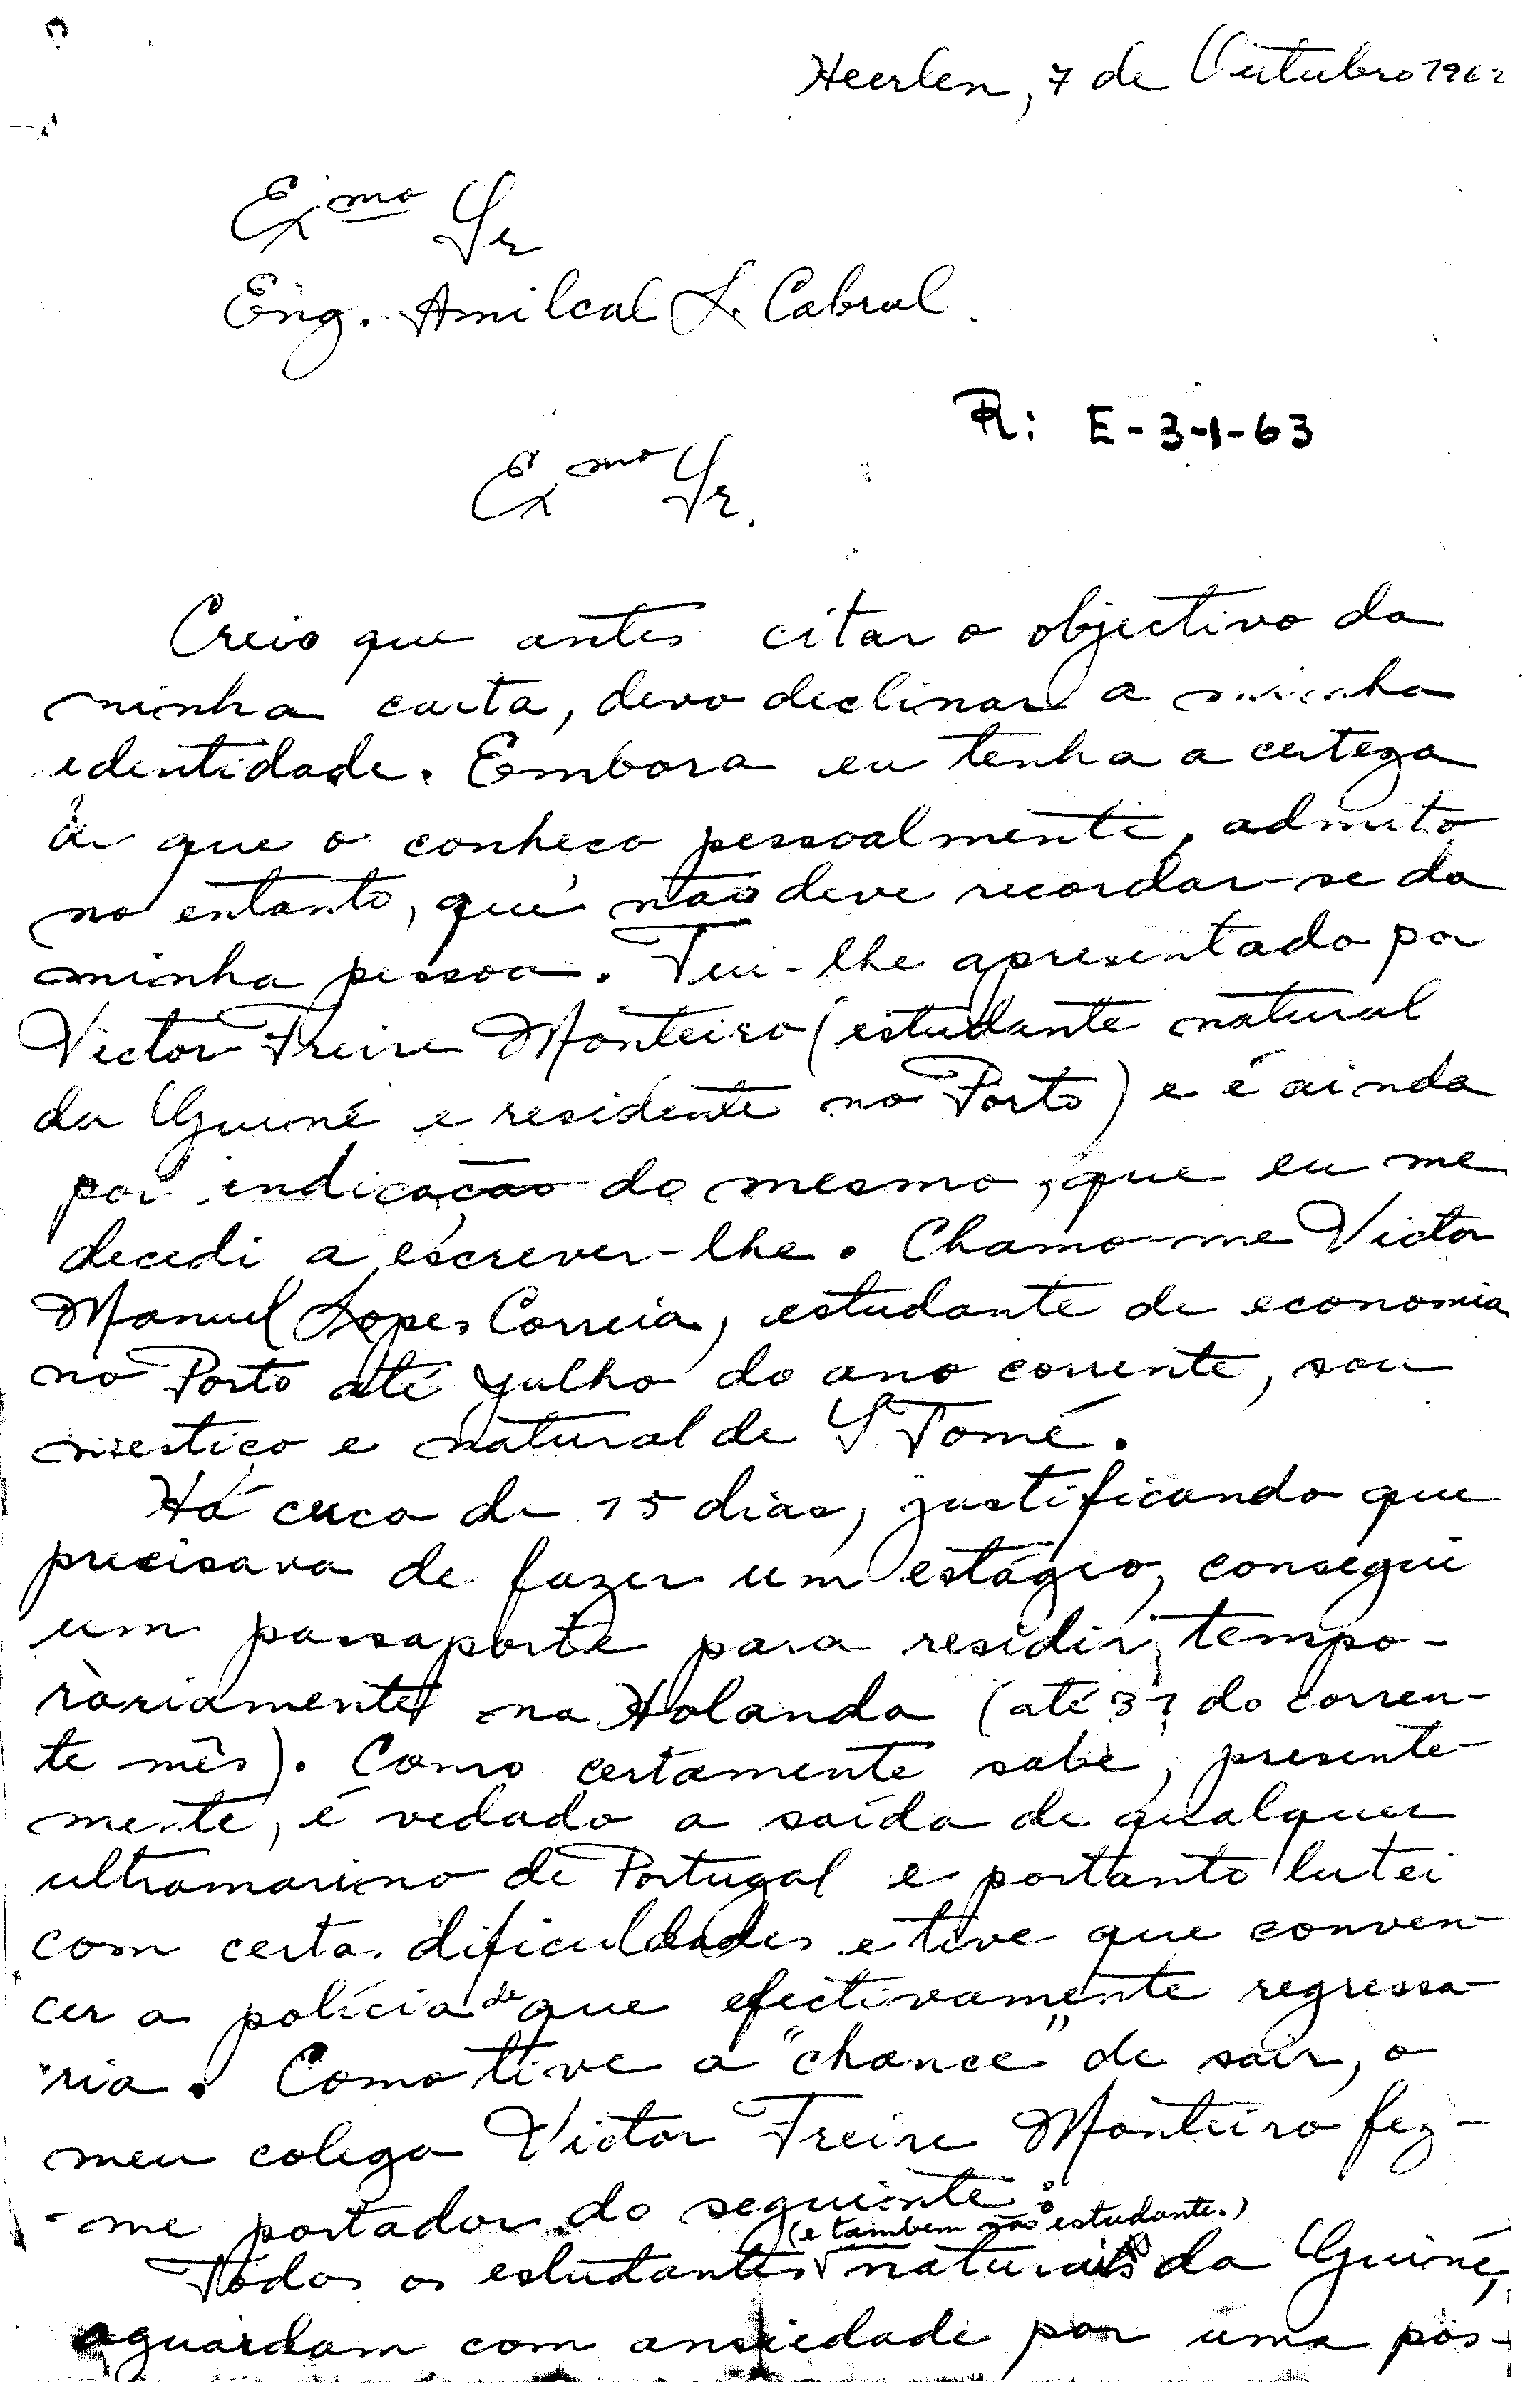 Heerlen, 7 de Outubro 1962
Exmo Sr
Eng. Amilcal L. Cabral.
R: E-3-1-63
Exmo Sr.
Creio que antes citar o objectivo da
minha carta, devo declinar a minha
edentidade. Embora eu tenha a certeza
de que o conheço pessoalmente, admito
no entanto, que não deve recordar-se da
minha pessoa. Fui-lhe apresentado por
Victor Freire Monteiro (estudante natural
da Guiné e residente no Porto) e é ainda
por indicação do mesmo, que eu me
decedi a escrever-lhe. Chamo-me Victor
Manuel Lopes Correia, estudante de economia
no Porto até Julho do ano corrente, sou
mestiço e natural de S. Tomé.
Há cerca de 15 dias, justificando que
precisava de fazer um estágio, consegui
um passaporte para residir tempo-
ràriamente na Holanda (até 31 do corren-
te mês). Como certamente sabe, presente-
mente, é vedado a saída de qualquer
ultramarino de Portugal e portanto lutei
com certas dificuldades e tive que conven-
cer a polícia de que efectivamente regressa-
ria. Como tive a "chance" de sair, o
meu colega Victor Freire Monteiro fez-
-me portador do seguinte:
(e tambem não estudantes)
Todos os estudantes naturais da Guiné,
aguardam com ansiedade por uma pos-